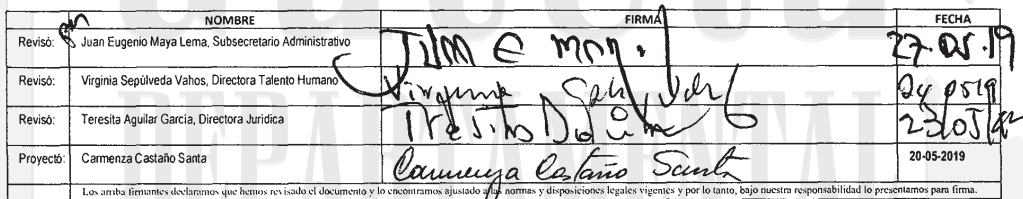 NOMBRE FIRMA FECHA
Revisó: Juan Eugenio Maya Lema, Subsecretario Administrativo 27.05.19
Revisó: Virginia Sepúlveda Vahos, Directora Talento Humano Virginia
Revisó: Teresita Aguilar García, Directora Jurídica Teresita
Proyectó: Carmenza Castaño Santa Carmenza Castaño Santa 20-05-2019
Los arriba firmantes declaramos que hemos revisado el documento y lo encontramos ajustado a las normas y disposiciones legales vigentes y por lo tanto, bajo nuestra responsabilidad lo presentamos para firma.